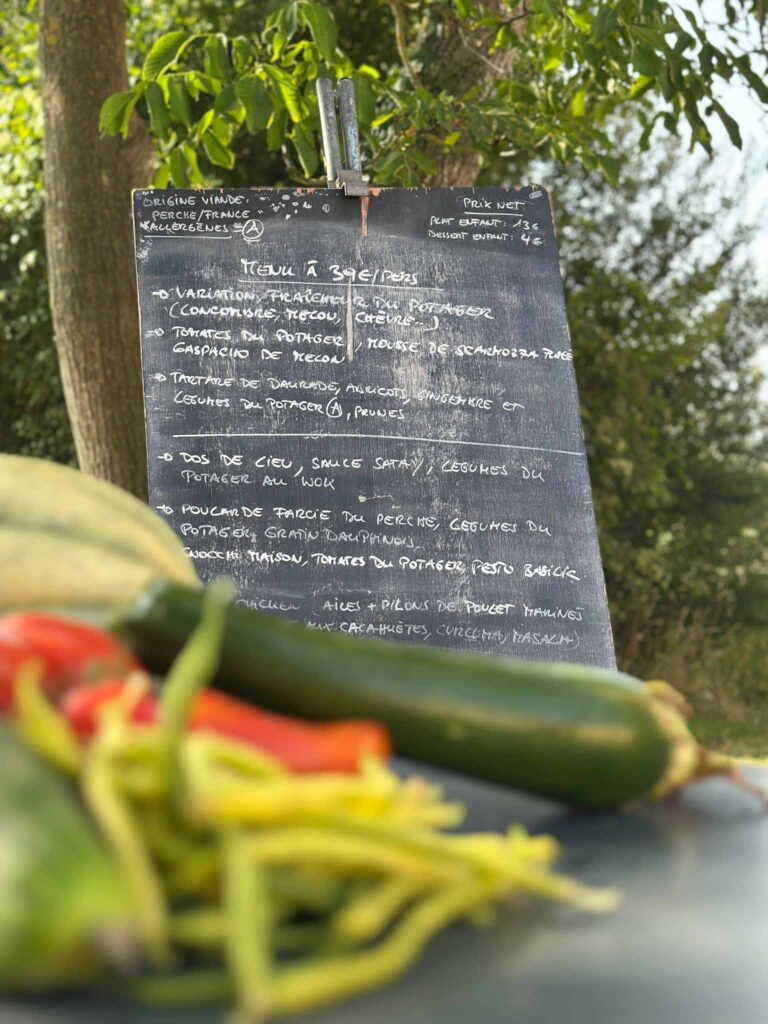 ORIGINE VIANDE:
PERCHE/FRANCE
*ALLERGÈNES = Ⓐ
PRIX NET
PLAT ENFANT: 13€
DESSERT ENFANT: 4€
MENU À 39€/PERS
→ VARIATION FRAÎCHEUR DU POTAGER
(CONCOMBRE, MELON, CHÈVRE...)
→ TOMATES DU POTAGER, MOUSSE DE SCARMOZZA FUMÉE
GASPACHO DE MELON
→ TARTARE DE DAURADE, ABRICOTS, GINGEMBRE ET
LEGUMES DU POTAGER Ⓐ, PRUNES
→ DOS DE LIEU, SAUCE SATAY, LEGUMES DU
POTAGER AU WOK
→ POULARDE FARCIE DU PERCHE, LEGUMES DU
POTAGER, GRATIN DAUPHINOIS,
GNOCCHI MAISON, TOMATES DU POTAGER, PESTO BASILIC
CHICKEN (AILES + PILONS DE POULET MARINÉS
AUX CACAHUÈTES, CURCUMA, MASALA)